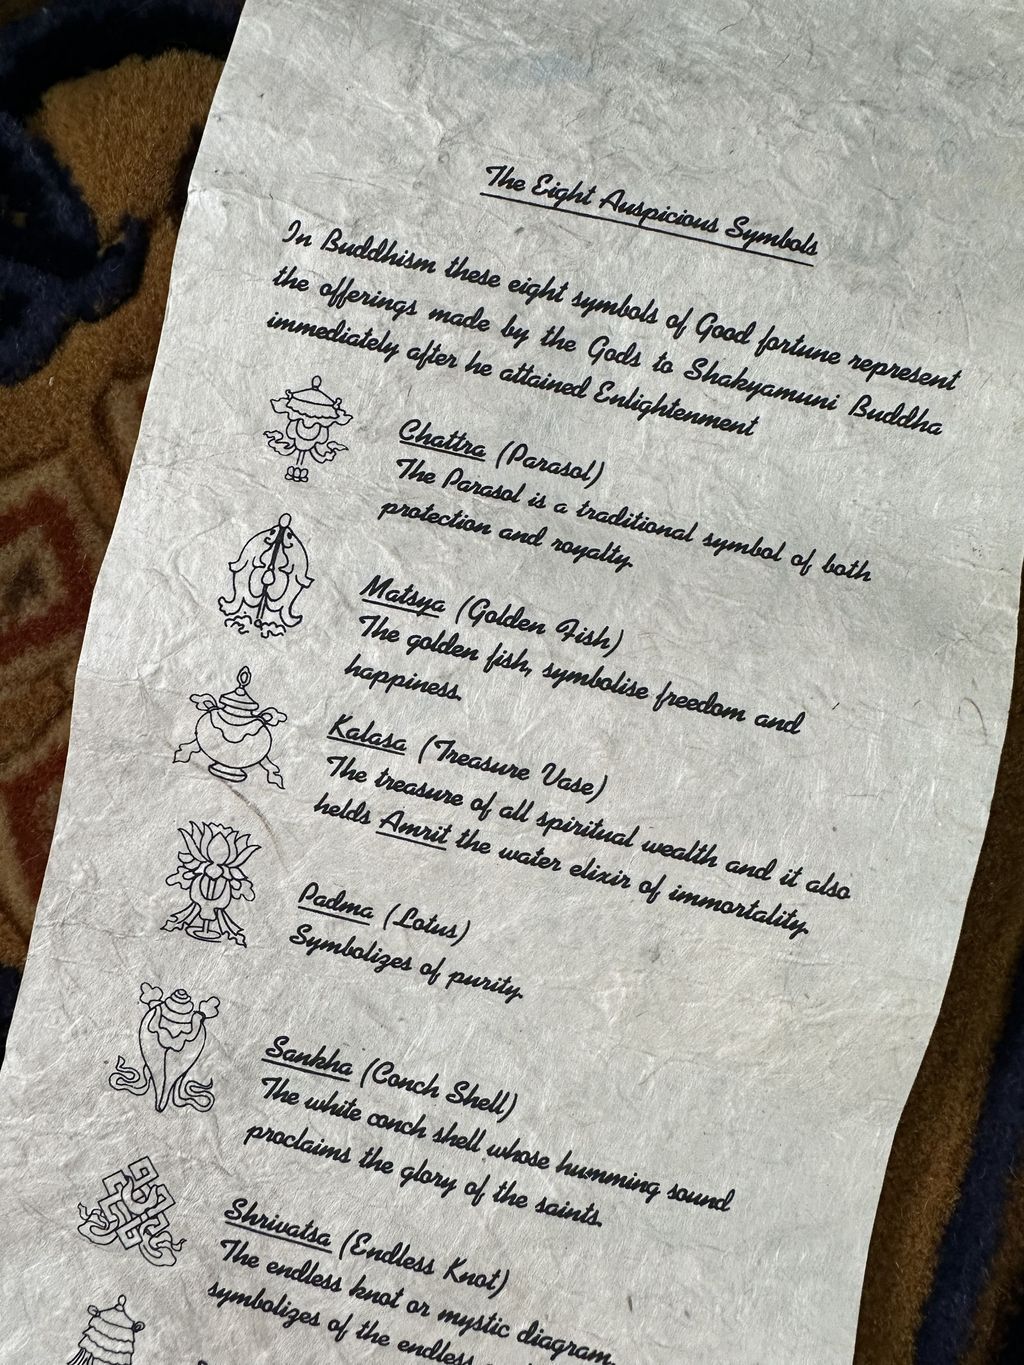 The Eight Auspicious Symbols
In Buddhism these eight symbols of Good fortune represent
the offerings made by the Gods to Shakyamuni Buddha
immediately after he attained Enlightenment
Chattra (Parasol)
The Parasol is a traditional symbol of both
protection and royalty.
Matsya (Golden Fish)
The golden fish, symbolise freedom and
happiness.
Kalasa (Treasure Vase)
The treasure of all spiritual wealth and it also
helds Amrit the water elixir of immortality.
Padma (Lotus)
Symbolizes of purity.
Sankha (Conch Shell)
The white conch shell whose humming sound
proclaims the glory of the saints.
Shrivatsa (Endless Knot)
The endless knot or mystic diagram,
symbolizes of the endless